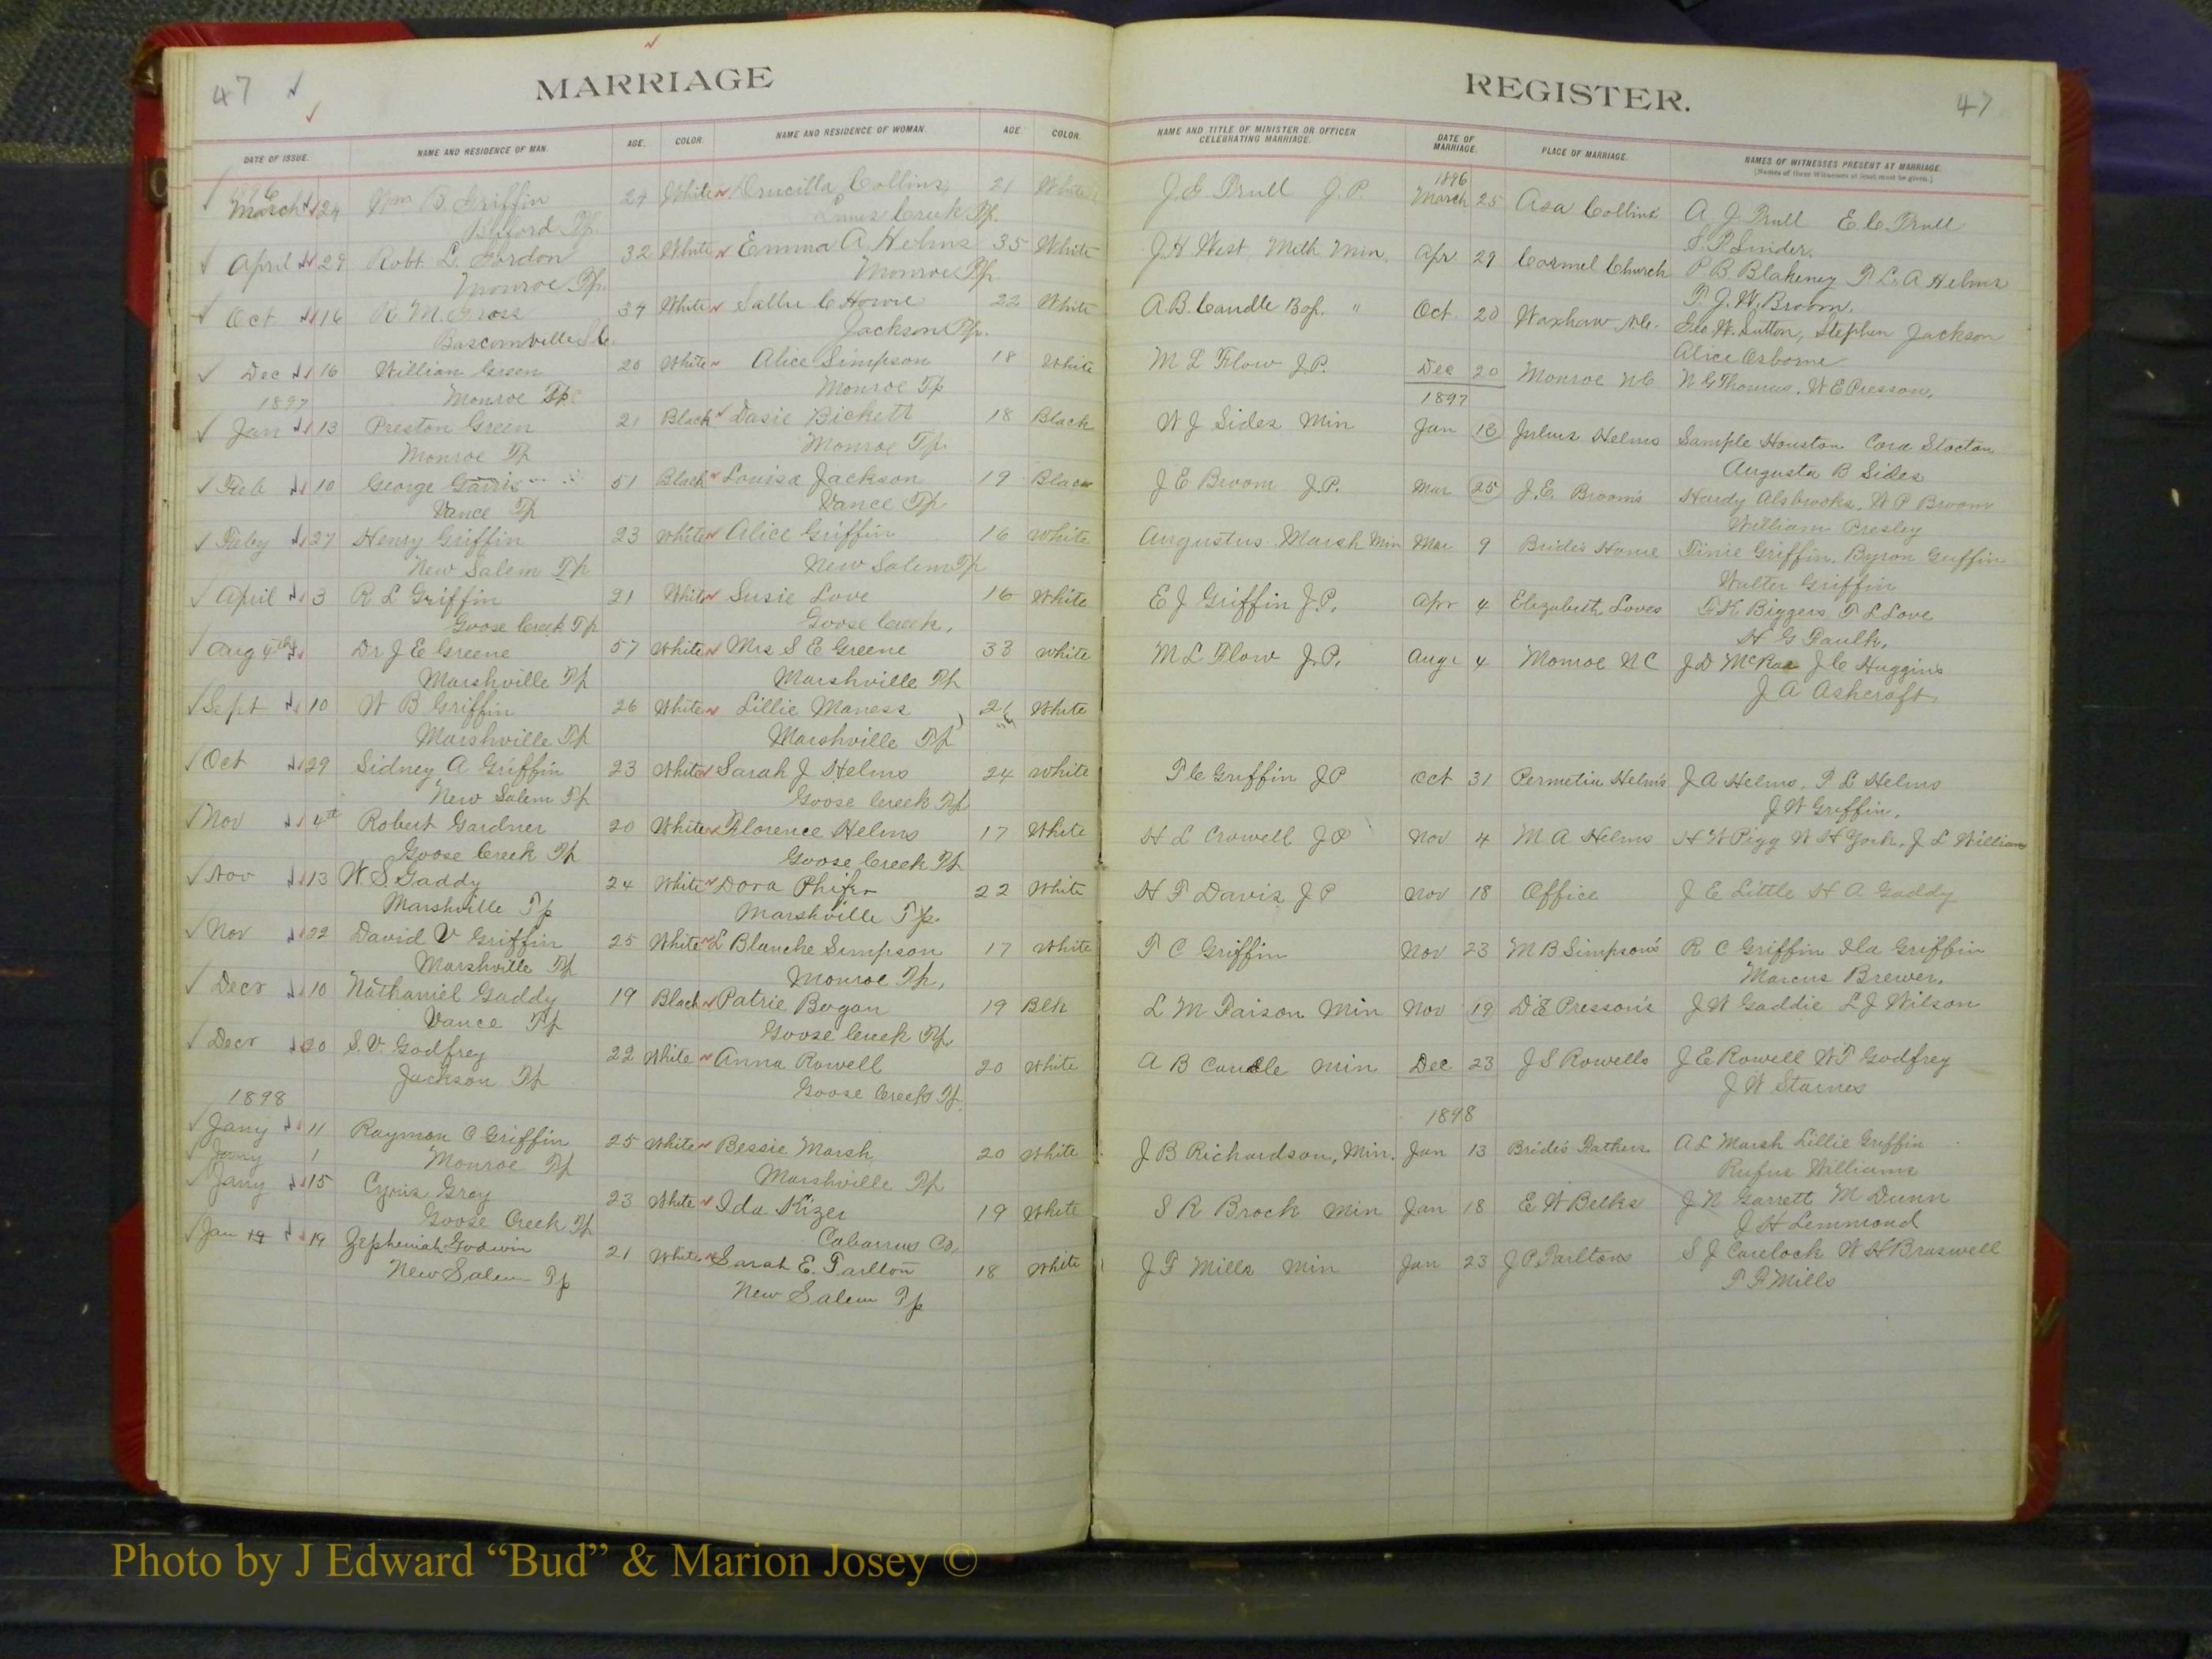 47 MARRIAGE
DATE OF ISSUE. NAME AND RESIDENCE OF MAN. AGE. COLOR. NAME AND RESIDENCE OF WOMAN. AGE. COLOR.
1896
March 24 Wm B. Griffin 29 White Drucilla Collins 21 White
Buford Tp. Lanes Creek Tp.
April 29 Robt. L. Gordon 32 White Emma A. Helms 35 White
Monroe Tp. Monroe Tp.
Oct 16 R. M. Gross 34 White Sallie C Howie 22 White
Bascomville S.C. Jackson Tp.
Dec 16 William Green 20 White Alice Simpson 18 White
1897 Monroe Tp Monroe Tp
Jan 13 Preston Green 21 Black Dasie Bickett 18 Black
Monroe Tp Monroe Tp.
Feb 10 George Garris 51 Black Louisa Jackson 19 Black
Vance Tp Vance Tp.
Feby 27 Henry Griffin 23 White Alice Griffin 16 White
New Salem Tp New Salem Tp
April 3 R L Griffin 21 White Susie Love 16 White
Goose Creek Tp Goose Creek,
Aug 4th Dr J E Greene 57 White Mrs S E Greene 33 White
Marshville Tp Marshville Tp
Sept 10 W B Griffin 26 White Lillie Maness 26 White
Marshville Tp Marshville Tp
Oct 29 Sidney A Griffin 23 White Sarah J Helms 24 White
New Salem Tp Goose Creek Tp
Nov 4th Robert Gardner 20 White Florence Helms 17 White
Goose Creek Tp Goose Creek Tp
Nov 13 W. S. Gaddy 24 White Dora Phifer 22 White
Marshville Tp Marshville Tp.
Nov 22 David V Griffin 25 White L Blanche Simpson 17 White
Marshville Tp Monroe Tp,
Decr 10 Nathaniel Gaddy 19 Black Patrie Bogan 19 Blk
Vance Tp Goose Creek Tp
Decr 20 S. V. Godfrey 22 White Anna Rowell 20 White
Jackson Tp Goose Creek Tp
1898
Jany 11 Raymon C Griffin 25 White Bessie Marsh 20 White
Jany 1 Monroe Tp Marshville Tp
Jany 15 Cyrus Gray 23 White Ida Kizer 19 White
Goose Creek Tp Cabarrus Co.
Jan 19 19 Zepheniah Godwin 21 White Sarah E. Tarlton 18 White
New Salem Tp New Salem Tp
REGISTER. 47
NAME AND TITLE OF MINISTER OR OFFICER CELEBRATING MARRIAGE. DATE OF MARRIAGE. PLACE OF MARRIAGE. NAMES OF WITNESSES PRESENT AT MARRIAGE.
[Names of three Witnesses at least must be given.]
1896
J. E Trull J. P. March 25 Asa Collins A. J. Trull E. C. Trull
S. P. Snider.
J. H West, Meth Min. Apr 29 Carmel Church P. B. Blakeney T. L. A Helms
T. J. W. Broom.
A. B. Caudle Bap. " Oct. 20 Waxhaw N.C. Geo. W. Sutton, Stephen Jackson
Alice Osborne
M L Flow J.P. Dec 20 Monroe NC N G Thomas, W E Presson,
1897
W J Sides Min Jan 13 Julius Helms Sample Houston Cora Stocton
Augusta B Sides
J E Broom J.P. Mar 25 J. E. Broom's Hardy Alsbrooks, W P Broom
William Presley
Augustus Marsh Min Mar 9 Brides Home Tinie Griffin, Byron Griffin
Walter Griffin
E J Griffin J.P. Apr 4 Elizabeth Loves F K Biggers T L Love
H G Faulk,
M L Flow J.P. Aug 4 Monroe NC J D McRae J C Huggins
J A Ashcraft,
T C Griffin J P Oct 31 Permetia Helms J A Helms, T L Helms
J W Griffin,
H L Crowell J P Nov 4 M A Helms H W Pigg W H York, J L Williams
H F Davis J P Nov 18 Office J E Little H A Gaddy
T C Griffin Nov 23 M B Simpson's R C Griffin Ila Griffin
Marcus Brewer,
L M Faison Min Nov 19 D E Presson's J W Gaddie L J Wilson
A B Caudle Min Dec 23 J S Rowells J E Rowell W T Godfrey
J W Starnes
1898
J B Richardson, Min. Jan 13 Brides Fathers A L Marsh Lillie Griffin
Rufus Williams
S R Brock Min Jan 18 E W Belks J N Garrett M Dunn
J H Lemmond
J F Mills Min Jan 23 J P Tarltons S J Curlock W H Braswell
T F Mills
Photo by J Edward “Bud” & Marion Josey ©